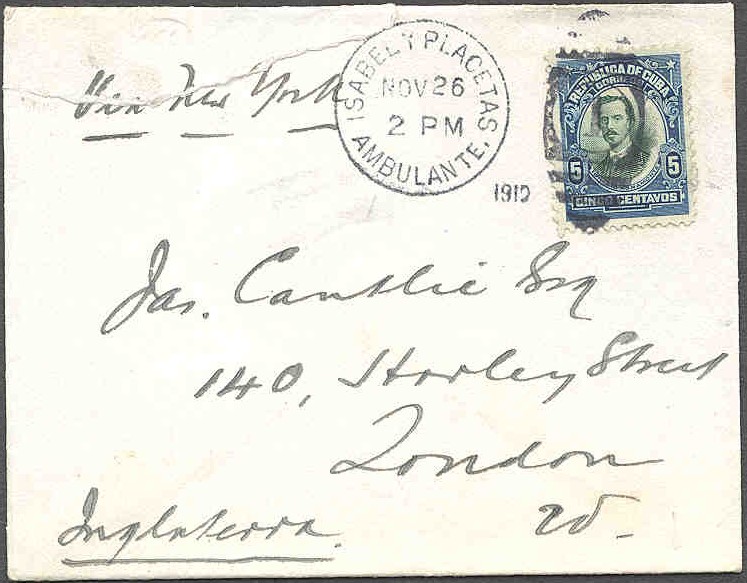 Via New York
ISABEL Y PLACETAS
NOV 26
2 PM
AMBULANTE.
1912
REPUBLICA DE CUBA
CORREOS
5 5
CINCO CENTAVOS
Jas. Cantlie Esq
140, Harley Street
London
W.
Inglaterra.